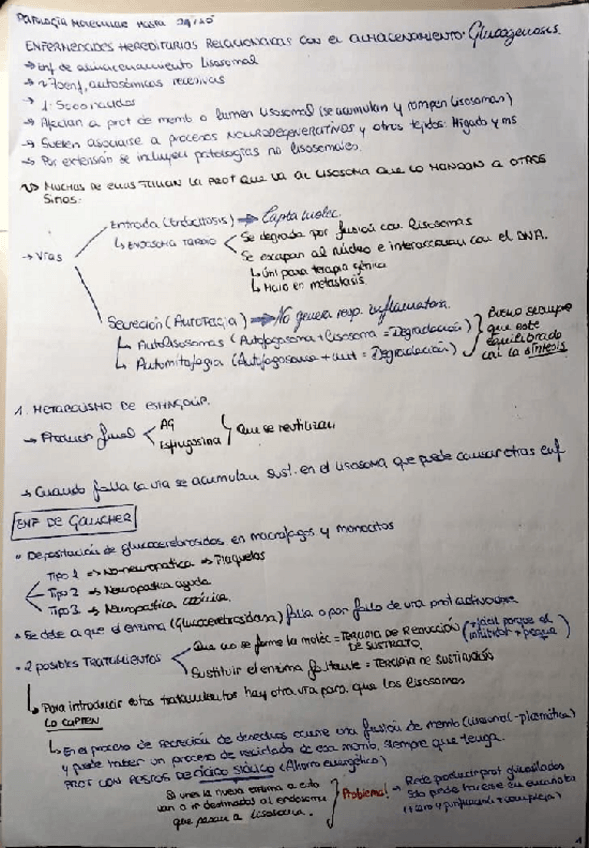 PATOLOGÍA MOLECULAR
ENFERMEDADES HEREDITARIAS RELACIONADAS CON EL ALMACENAMIENTO: Glucogenosis.
→ Enf de almacenamiento Lisosomal
→ 270 enf, autosómicas recesivas
→ 1: 5000 nacidos
→ Afectan a prot de memb o lumen lisosomal (se acumulan y rompen lisosomas)
→ Suelen asociarse a procesos NEURODEGENERATIVOS y otros tejidos: Hígado y ms
→ Por extensión se incluyen patologías no lisosomales.
MUCHAS DE ELLAS FALLAN LA PROT QUE VA AL LISOSOMA QUE LO MANDAN A OTROS
SITIOS:
Entrada (Endocitosis) → Capta molec.
→ Vías
↳ ENDOSOMA TARDÍO
Se degrada por fusión con lisosomas
Se escapan al núcleo e interaccionan con el DNA.
↳ Útil para terapia génica
↳ Malo en metástasis
Secreción (AUTOFAGIA) → No genera resp. inflamatoria.
↳ Autolisosomas (Autofagosoma + Lisosoma = Degradación)
↳ Automitofagia (Autofagosoma + mit = Degradación)
Bueno siempre
que esté
equilibrado
con la síntesis
1. METABOLISMO DE ESFINGOLÍP.
→ Producto final
AG
Esfingosina
que se reutilizan
→ Cuando falla la vía se acumulan sust. en el lisosoma que puede causar otras enf
ENF DE GAUCHER
Depositación de glucocerebrosidos en macrófagos y monocitos
Tipo 1 => No-neuropática => Plaquetas
Tipo 2 → Neuropática aguda
Tipo 3 → Neuropática crónica.
Se debe a que el enzima (Glucocerebrosidasa) falla o por fallo de una prot activadora
2 posibles TRATAMIENTOS
Que no se forme la moléc = TERAPIA DE REDUCCIÓN DE SUSTRATO. (+ fácil porque el inhibidor + peque)
Sustituir el enzima faltante = TERAPIA DE SUSTITUCIÓN
↳ Para introducir estos tratamientos hay otra vía para que los lisosomas
LO CAPTEN
↳ En el proceso de secreción de derechos ocurre una fusión de memb (lisosomal-plasmática)
y puede haber un proceso de reciclado de esa memb, siempre que tenga
PROT CON RESTOS DE ÁCIDO SIÁLICO (Ahorro energético)
Si unes la nueva enzima a esto
van a ir destinados al endosoma
que pasan a lisosoma.
Problema! → Rede producir prot glicosiladas
solo puede hacerse en eucariota
(+ caro y purificación + compleja)
1